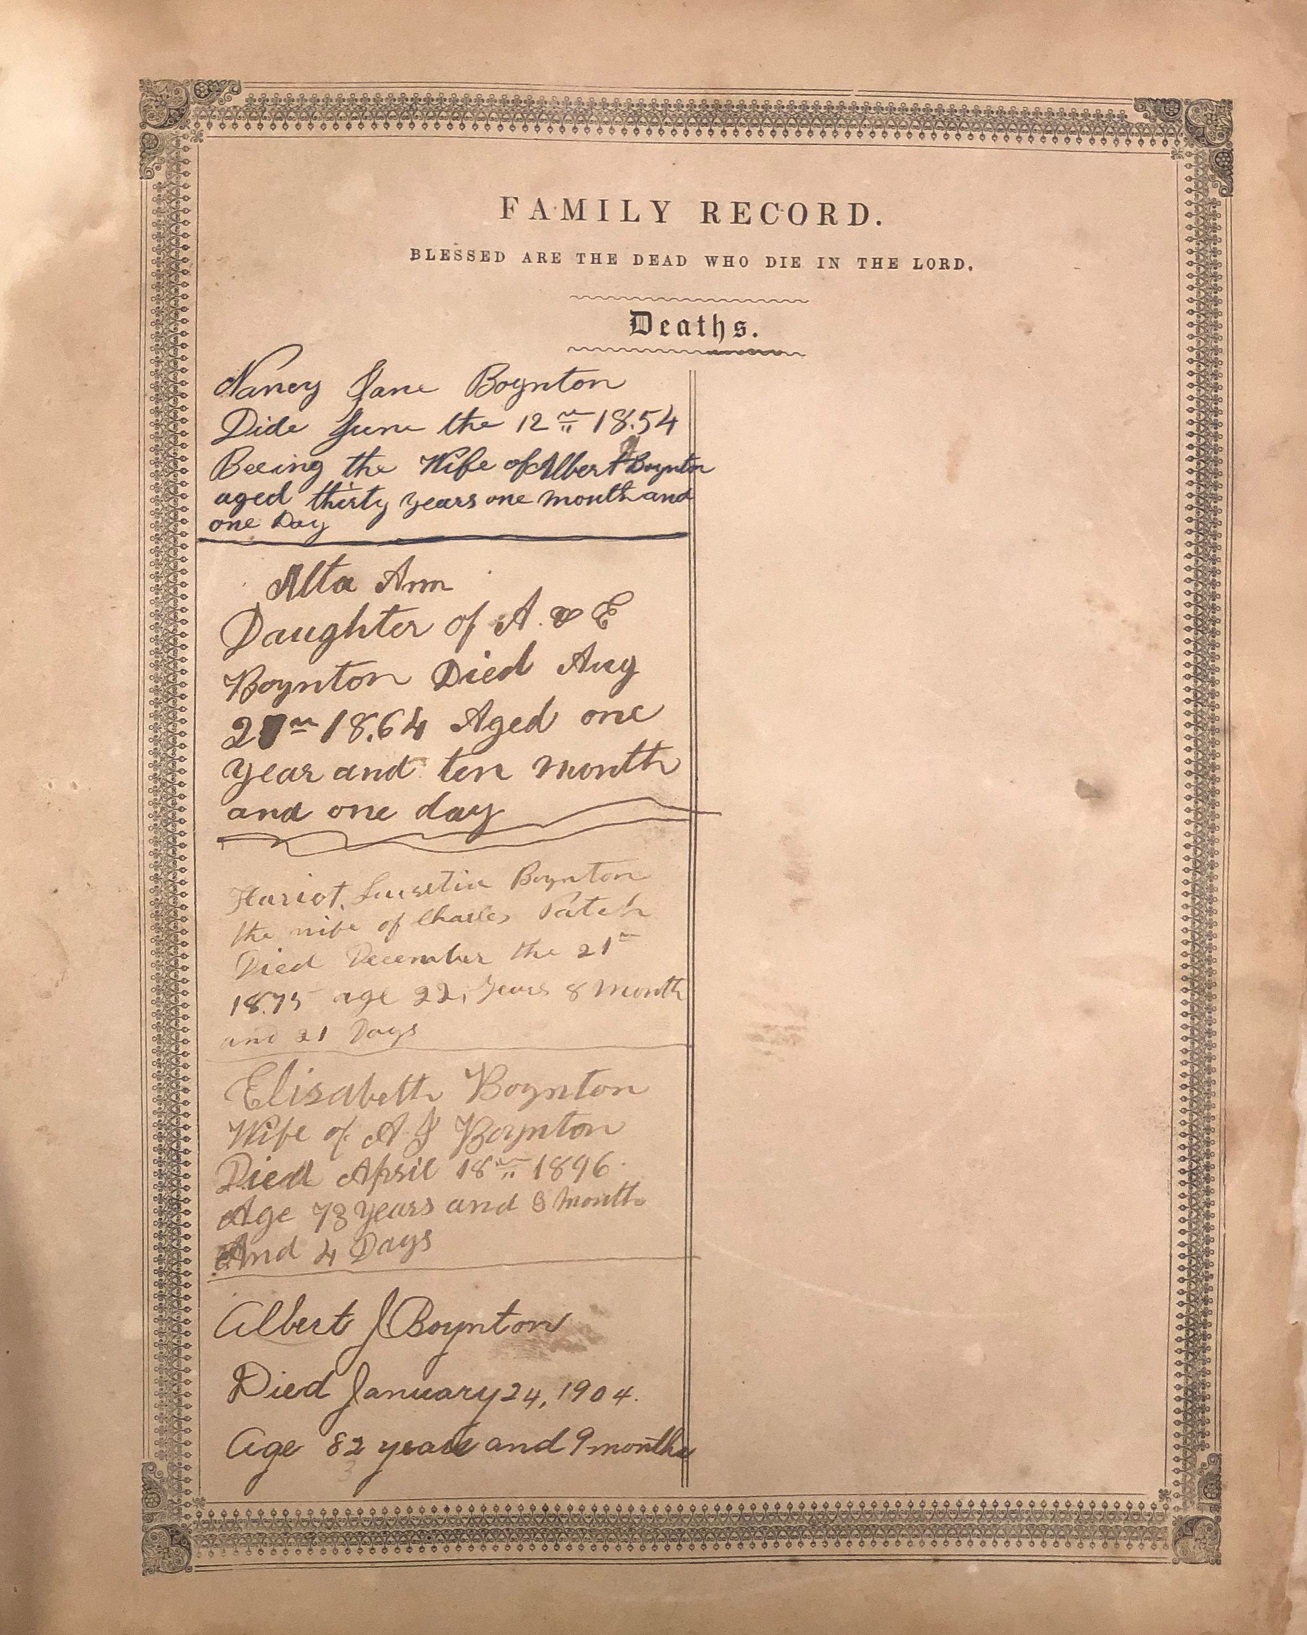 FAMILY RECORD.
BLESSED ARE THE DEAD WHO DIE IN THE LORD.
Deaths.
Nancy Jane Boynton
Dide June the 12th 18.54
Beeing the Wife of Albert J Boynton
aged thirty years one month and
one Day
Alta Ann
Daughter of A. & E
Boynton Died Aug
th 18.64 Aged one
year and ten month
and one day
Hariot. Lucretia Boynton
the wife of Charles Patch
Died December the 21st
18.75 age 22, years 8 month
and 21 Days
Elisabeth Boynton
Wife of A J Boynton
Died April 18th 1896.
Age 73 years and 8 month
And 4 Days
Albert J Boynton
Died January 24, 1904.
Age 82 years and 9 months
3